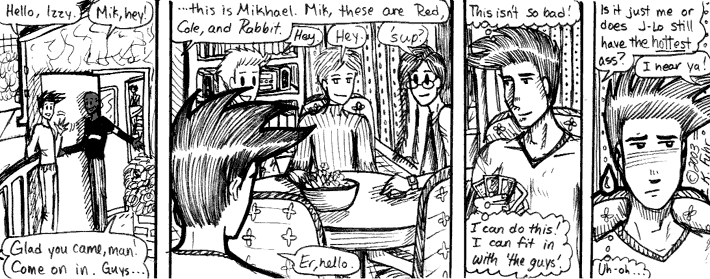 Hello, Izzy.
Mik, hey!
Glad you came, man.
Come on in. Guys...
...this is Mikhael. Mik, these are Red,
Cole, and Rabbit.
Hey.
Hey.
'sup?
Er, hello.
This isn't so bad!
I can do this!
I can fit in
with the guys!
Is it just me or
does J-Lo still
have the hottest
ass?
I hear ya!
Uh-oh...
©2003
K. Fuhr